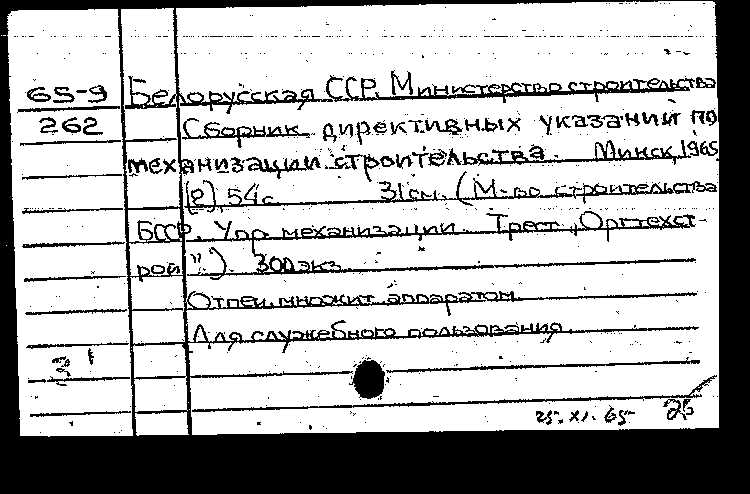 65-9 Белорусская ССР. Министерство строительства
262 Сборник директивных указаний по
механизации строительства. Минск, 1965
[2], 54с. 31см. (М-во строительства
БССР. Упр. механизации. Трест „Оргтехст-
рой"). 300 экз.
Отпеч. множит. аппаратом.
Для служебного пользования.
25.XI.65 25